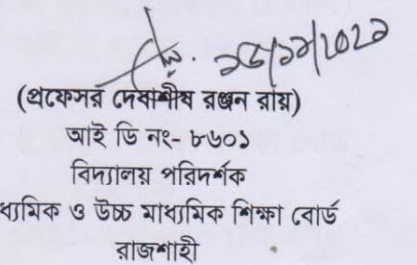 (প্রফেসর দেবাশীষ রঞ্জন রায়)
আই ডি নং- ৮৬০১
বিদ্যালয় পরিদর্শক
ধ্যমিক ও উচ্চ মাধ্যমিক শিক্ষা বোর্ড
রাজশাহী